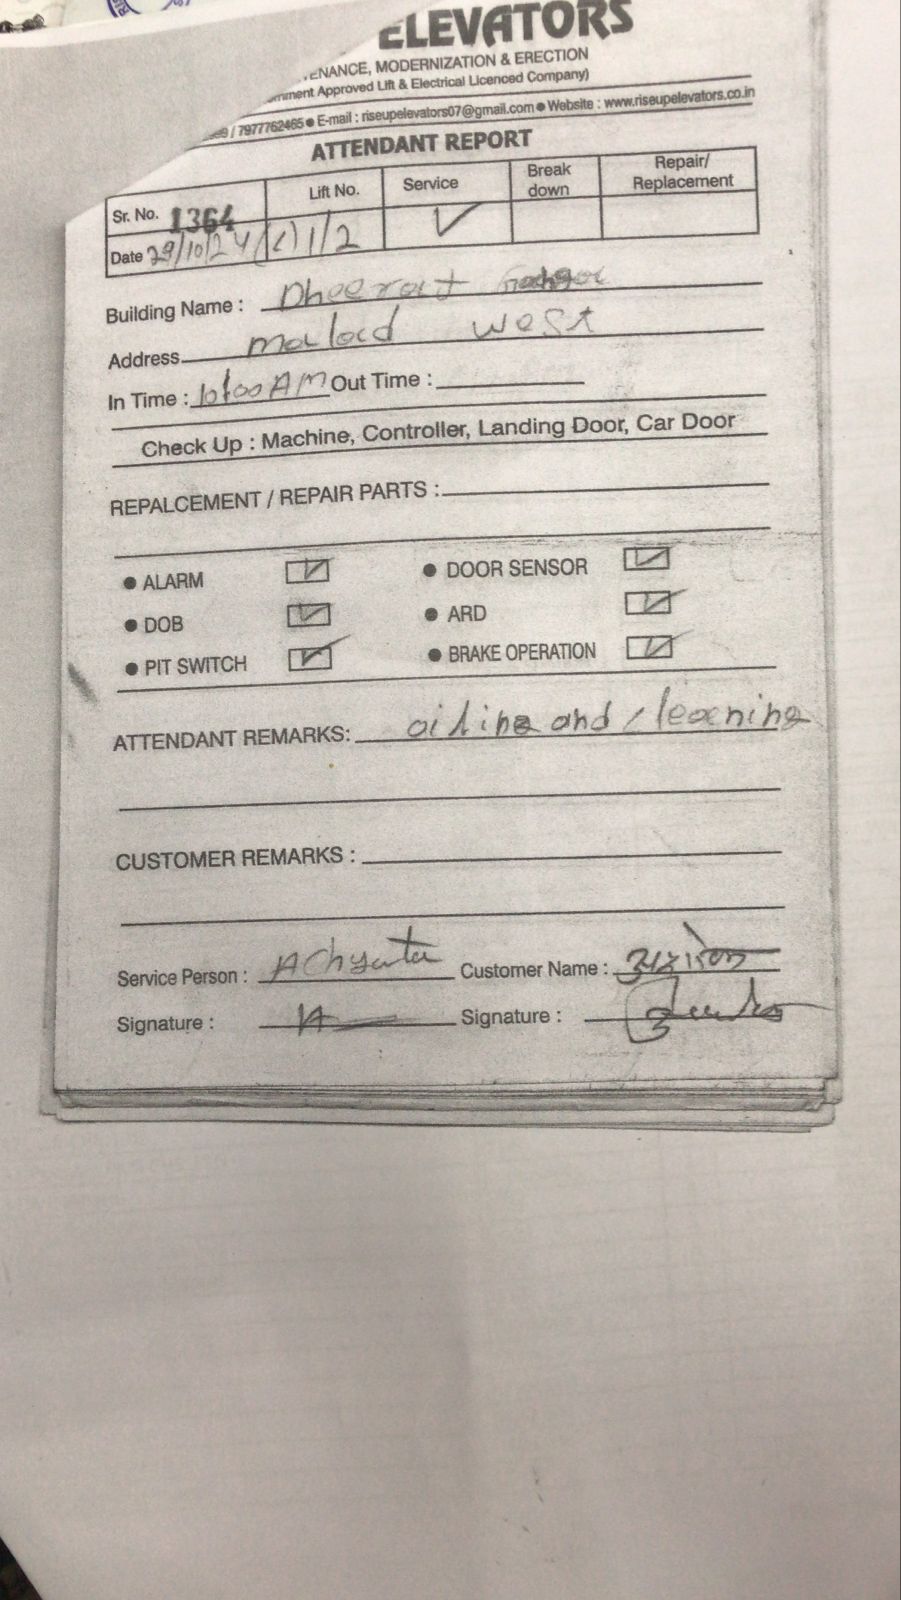 ELEVATORS
ENANCE, MODERNIZATION & ERECTION
nment Approved Lift & Electrical Licenced Company)
/ 7977762465 ● E-mail : riseupelevators07@gmail.com ● Website : www.riseupelevators.co.in
ATTENDANT REPORT
Sr. No. 1364 Lift No. Service Break down Repair/ Replacement
Date 29/10/24 (L) 1/2 ✓
Building Name : Dheeraj
Address malad west
In Time : 10:00 AM Out Time :
Check Up : Machine, Controller, Landing Door, Car Door
REPALCEMENT / REPAIR PARTS :
● ALARM ☑ ● DOOR SENSOR ☑
● DOB ☑ ● ARD ☑
● PIT SWITCH ☑ ● BRAKE OPERATION ☑
ATTENDANT REMARKS: oiling and cleaning
CUSTOMER REMARKS :
Service Person : Achyuta Customer Name :
Signature : Signature :